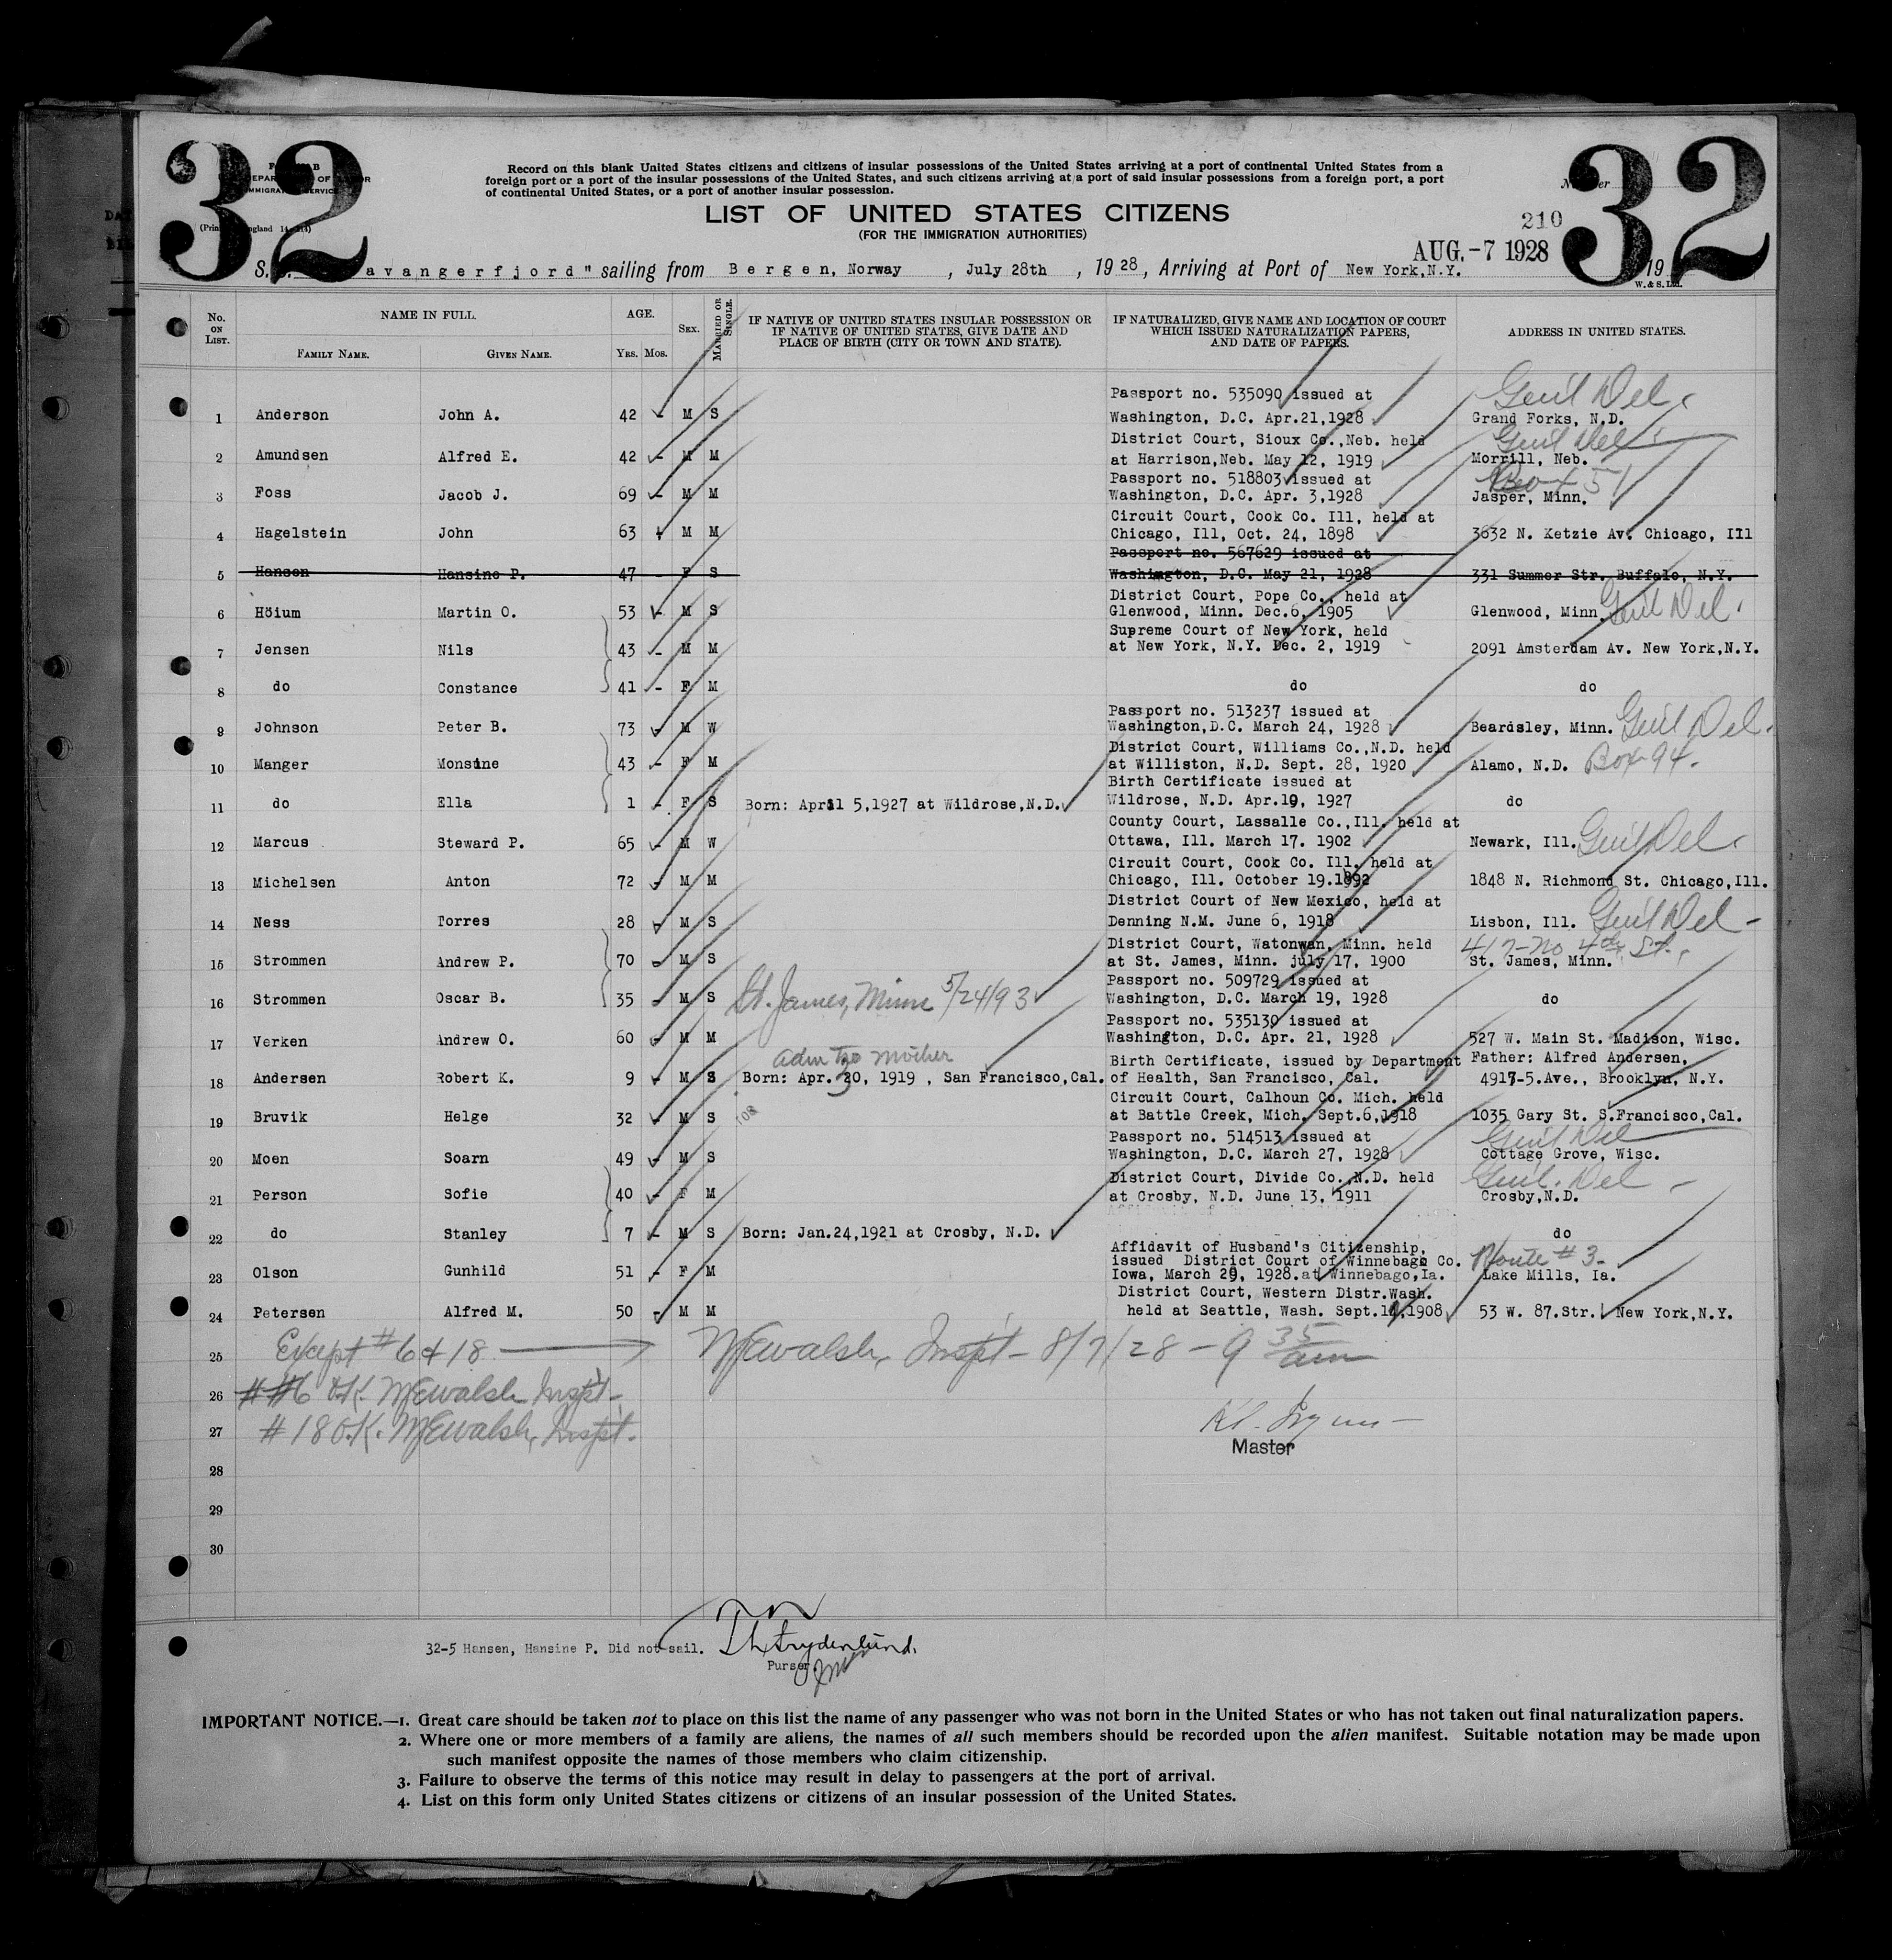 32
32
Record on this blank United States citizens and citizens of insular possessions of the United States arriving at a port of continental United States from a
foreign port or a port of the insular possessions of the United States, and such citizens arriving at a port of said insular possessions from a foreign port, a port
of continental United States, or a port of another insular possession.
LIST OF UNITED STATES CITIZENS
(FOR THE IMMIGRATION AUTHORITIES)
210
AUG.-7 1928
avangerfjord" sailing from Bergen, Norway, July 28th, 1928, Arriving at Port of New York,N.Y. 19
W. & S. Ltd.
No. ON LIST.
NAME IN FULL.
FAMILY NAME. GIVEN NAME.
AGE.
YRS. MOS.
SEX.
MARRIED OR SINGLE.
IF NATIVE OF UNITED STATES INSULAR POSSESSION OR
IF NATIVE OF UNITED STATES, GIVE DATE AND
PLACE OF BIRTH (CITY OR TOWN AND STATE).
IF NATURALIZED, GIVE NAME AND LOCATION OF COURT
WHICH ISSUED NATURALIZATION PAPERS,
AND DATE OF PAPERS.
ADDRESS IN UNITED STATES.
Passport no. 535090 issued at Genl Del.
1 Anderson John A. 42 - M S Washington, D.C. Apr.21,1928 Grand Forks, N.D.
District Court, Sioux Co.,Neb. held Genl Del
2 Amundsen Alfred E. 42 - M M at Harrison,Neb. May 12, 1919 Morrill, Neb.
Passport no. 518803 issued at Box 51
3 Foss Jacob J. 69 - M M Washington, D.C. Apr. 3,1928 Jasper, Minn.
Circuit Court, Cook Co. Ill, held at
4 Hagelstein John 63 M M Chicago, Ill, Oct. 24, 1898 3632 N. Ketzie Av. Chicago, Ill
Passport no. 567629 issued at
5 Hansen Hansine P. 47 - F S Washington, D.C. May 21, 1928 331 Summer Str. Buffalo, N.Y.
District Court, Pope Co., held at
6 Höium Martin O. 53 - M S Glenwood, Minn. Dec.6, 1905 Glenwood, Minn. Genl Del.
Supreme Court of New York, held
7 Jensen Nils 43 - M M at New York, N.Y. Dec. 2, 1919 2091 Amsterdam Av. New York,N.Y.
8 do Constance 41 - F M do do
Passport no. 513237 issued at
9 Johnson Peter B. 73 - M W Washington,D.C. March 24, 1928 Beardsley, Minn. Genl Del.
District Court, Williams Co.,N.D. held
10 Manger Monsine 43 - F M at Williston, N.D. Sept. 28, 1920 Alamo, N.D. Box 94.
Birth Certificate issued at
11 do Ella 1 - F S Born: April 5,1927 at Wildrose,N.D. Wildrose, N.D. Apr.19, 1927 do
County Court, Lassalle Co.,Ill. held at
12 Marcus Steward P. 65 - M W Ottawa, Ill. March 17. 1902 Newark, Ill. Genl Del.
Circuit Court, Cook Co. Ill. held at
13 Michelsen Anton 72 - M M Chicago, Ill. October 19.1892 1848 N. Richmond St. Chicago,Ill.
District Court of New Mexico, held at
14 Ness Torres 28 - M S Denning N.M. June 6, 1918 Lisbon, Ill. Genl Del -
District Court, Watonwan, Minn. held 417-No 4th St.,
15 Strommen Andrew P. 70 - M S at St. James, Minn. july 17, 1900 St. James, Minn.
Passport no. 509729 issued at
16 Strommen Oscar B. 35 - M S St. James, Minn 5/24/93 Washington, D.C. March 19, 1928 do
Passport no. 535130 issued at
17 Verken Andrew O. 60 - M M Washington, D.C. Apr. 21, 1928 527 W. Main St. Madison, Wisc.
adm to mother Birth Certificate, issued by Department Father: Alfred Andersen,
18 Andersen Robert K. 9 - M S Born: Apr. 30, 1919 , San Francisco,Cal. of Health, San Francisco, Cal. 4917-5.Ave., Brooklyn, N.Y.
108 Circuit Court, Calhoun Co. Mich. held
19 Bruvik Helge 32 - M S at Battle Creek, Mich. Sept.6,1918 1035 Gary St. S.Francisco,Cal.
Passport no. 514513 issued at Genl Del
20 Moen Soarn 49 - M S Washington, D.C. March 27, 1928 Cottage Grove, Wisc.
District Court, Divide Co. N.D. held Genl. Del -
21 Person Sofie 40 - F M at Crosby, N.D. June 13, 1911 Crosby,N.D.
22 do Stanley 7 - M S Born: Jan.24,1921 at Crosby, N.D. do
Affidavit of Husband's Citizenship,
issued District Court of Winnebago Co. Route # 3-
23 Olson Gunhild 51 - F M Iowa, March 29, 1928.at Winnebago,Ia. Lake Mills, Ia.
District Court, Western Distr.Wash.
24 Petersen Alfred M. 50 - M M held at Seattle, Wash. Sept.14,1908 53 W. 87.Str. New York,N.Y.
25 Except #6 & 18 MEWalsh, Inspt - 8/7/28 - 9 35 am
26 ##6 O.K. MEWalsh Inspt -
27 #18 O.K. MEWalsh, Inspt.
Master
28
29
30
32-5 Hansen, Hansine P. Did not sail. Th Frydenlund.
Purser
IMPORTANT NOTICE.—1. Great care should be taken not to place on this list the name of any passenger who was not born in the United States or who has not taken out final naturalization papers.
2. Where one or more members of a family are aliens, the names of all such members should be recorded upon the alien manifest. Suitable notation may be made upon
such manifest opposite the names of those members who claim citizenship.
3. Failure to observe the terms of this notice may result in delay to passengers at the port of arrival.
4. List on this form only United States citizens or citizens of an insular possession of the United States.